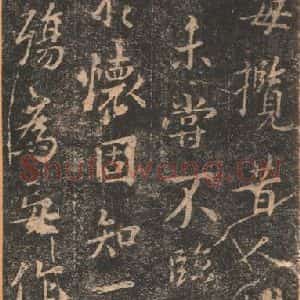 每攬昔人
未嘗不臨
於懷固知一
殤為妄作
Shufawang.cn